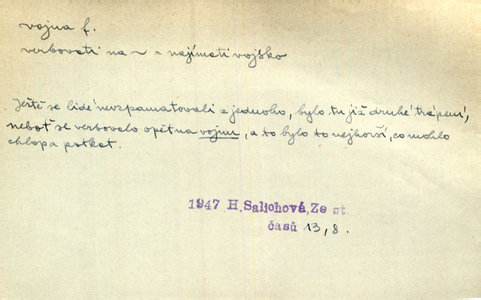 vojna f.
verbovati na ~ = najímati vojsko
Ještě se lidé nevzpamatovali z jednoho, bylo tu již druhé trápení,
neboť se verbovalo opět na vojnu, a to bylo to nejhorší, co mohlo
chlopa potkat.
1947 H. Salichová, Ze st.
časů 13, 8.